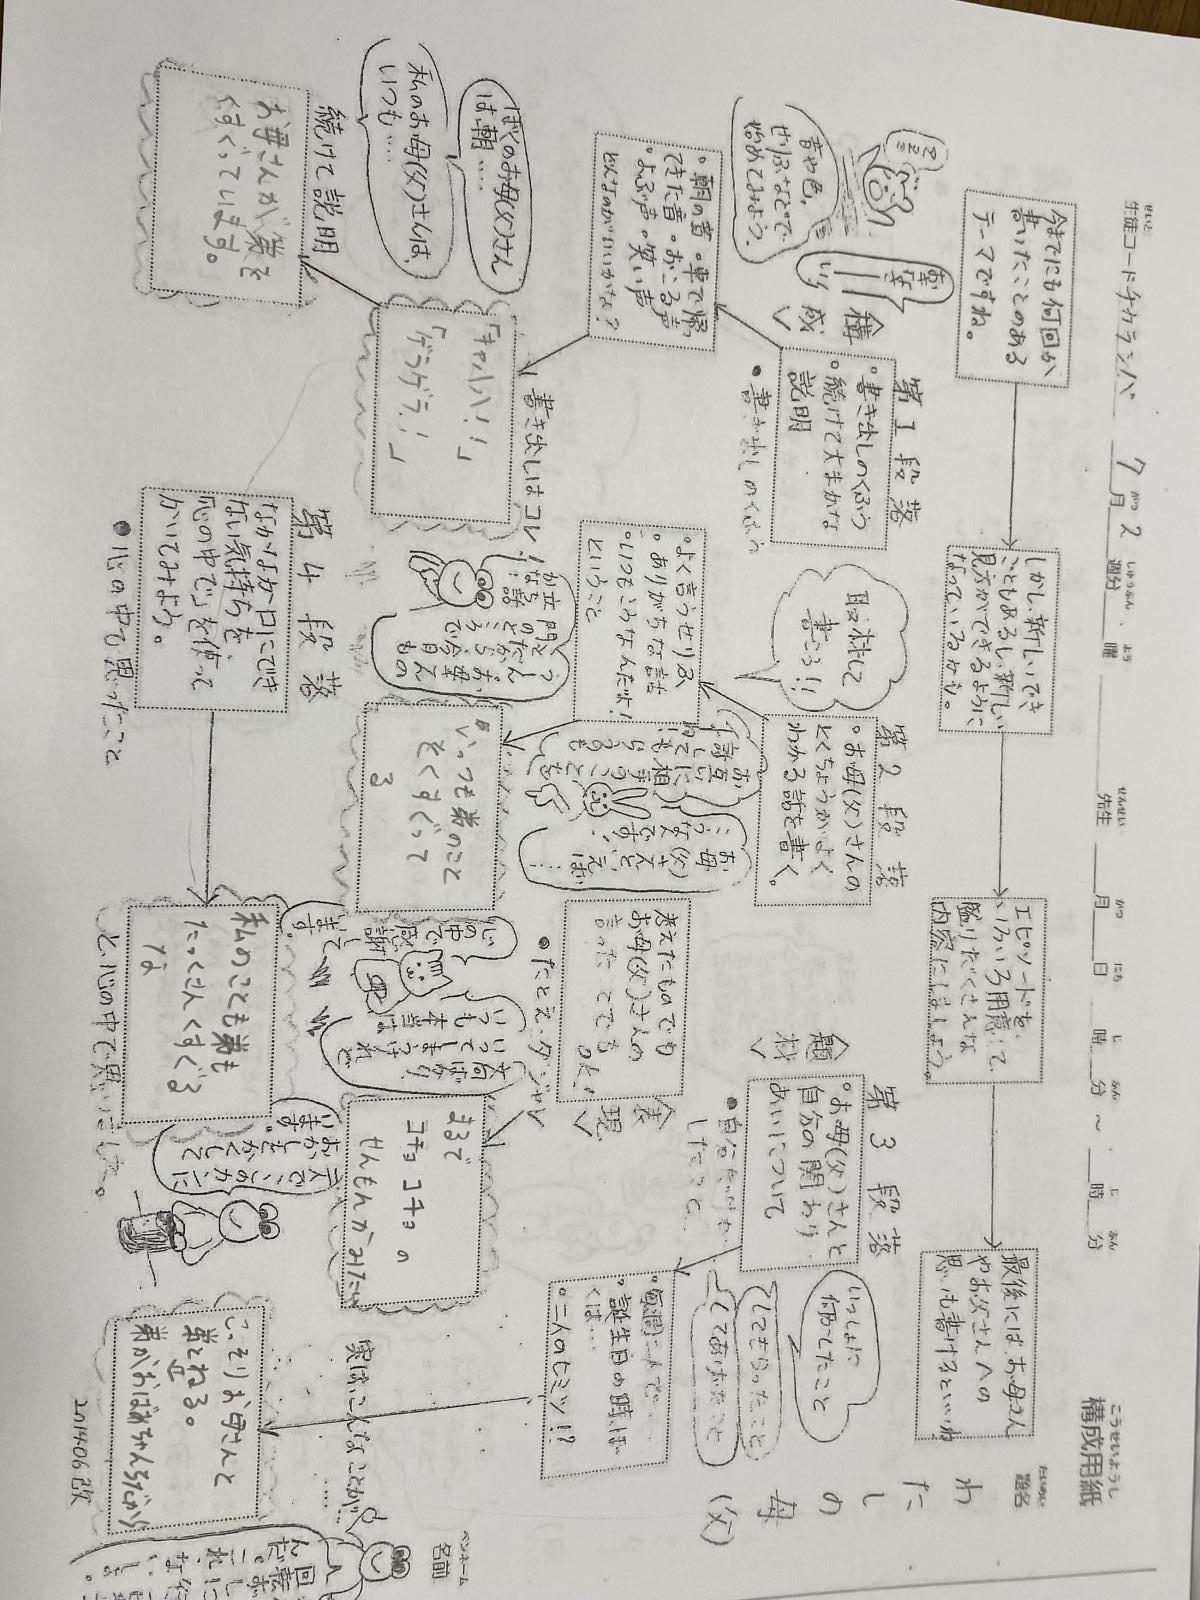 こうせいようし
構成用紙
せいと
生徒コード ナカランバ 7月2週分
せんせい
先生 月 日 時 分 ～ 時 分
だいめい
題名
わたしの母(父)
ペンネーム
名前
今までにも何回か
書いたことのある
テーマですね。
しかし、新しいでき
ごともあるし、新しい
見方ができるように
なっているかも。
エピソードを、
いろいろ用意して、
盛りだくさんな
内容にしましょう。
最後には、お母さん
やお父さんへの
思いも書けるといいね
第1段落
・書き出しのくふう
・続けて大まかな
説明
〈構成〉
●書き出しのくふう
音や色、
せりふなどで
始めてみよう。
・朝の音・車で帰っ
てきた音・おこる声
・よぶ声・笑い声
どんなのがいいかな？
書き出しはコレ！
「キャハハ！」
「ゲラゲラ！」
ぼくのお母(父)さん
は、朝……
私のお母(父)さんは、
いつも……
続けて説明
お母さんが弟を
くすぐっています。
第2段落
・お母(父)さんの
とくちょうがよく
わかる話を書く。
取材して
書こう！！
・よく言うせりふ
・ありがちな話
・いつもこうなんだよ！
ということ
いつも弟のこと
をくすぐって
る
考えたものでも
お母(父)さんの
言ったことでも
OK！
〈表現〉
●たとえ・ダジャレ
まるで
コチョコチョの
せんもんかみたい
第3段落
・お母(父)さんと
自分の関わり
あいについて
〈題材〉
●自分だけが
したこと
いっしょに
何かしたこと
してもらったこと
してあげたこと
・毎週二人で
・誕生日の時、ぼ
くは…
・二人のヒミツ！？
実はこんなことが…
こっそりお母さんと
弟とねる。
弟がおばあちゃんちだから
第4段落
なかなか口にでき
ない気持ちを、
「心の中で」を使って
かいてみよう。
●心の中で思ったこと
私のことも弟も
たっくさんくすぐる
な
と、心の中で思いました。
201406改